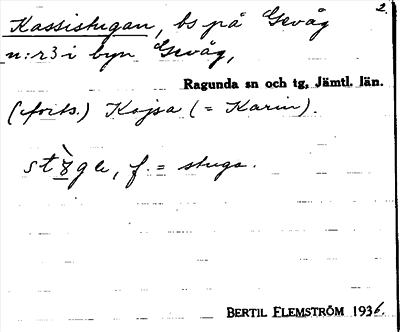 2.
Kassistugan, bs på Gevåg
n:r 3 i byn Gevåg,
Ragunda sn och tg, Jämtl. län.
(forts.) Kajsa (= Karin).
f. = stuga.
BERTIL FLEMSTRÖM 1936.